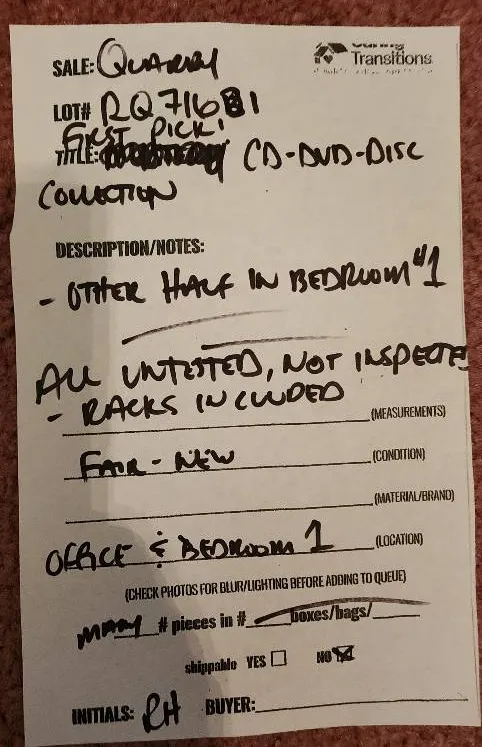 SALE: QUARRY
Caring Transitions
LOT# RQ7161
FIRST PICK!
TITLE: CD-DVD-DISC
COLLECTION
DESCRIPTION/NOTES:
- OTHER HALF IN BEDROOM #1
ALL UNTESTED, NOT INSPECTED
- RACKS INCLUDED
(MEASUREMENTS)
FAIR - NEW (CONDITION)
(MATERIAL/BRAND)
OFFICE & BEDROOM 1 (LOCATION)
(CHECK PHOTOS FOR BLUR/LIGHTING BEFORE ADDING TO QUEUE)
MANY # pieces in # boxes/bags/
shippable YES NO
INITIALS: RH BUYER: